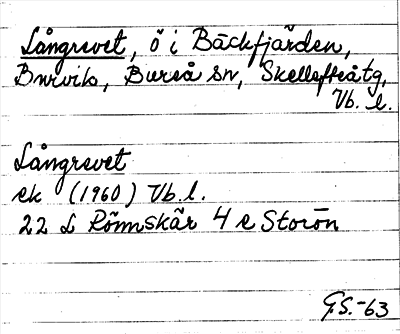 Långrevet, ö i Bäckfjärden,
Burvik, Bureå sn, Skellefteåtg,
Vb. l.
Långrevet
ek (1960) Vb. l.
22 L Rönnskär 4 e Storön
G.S.-63